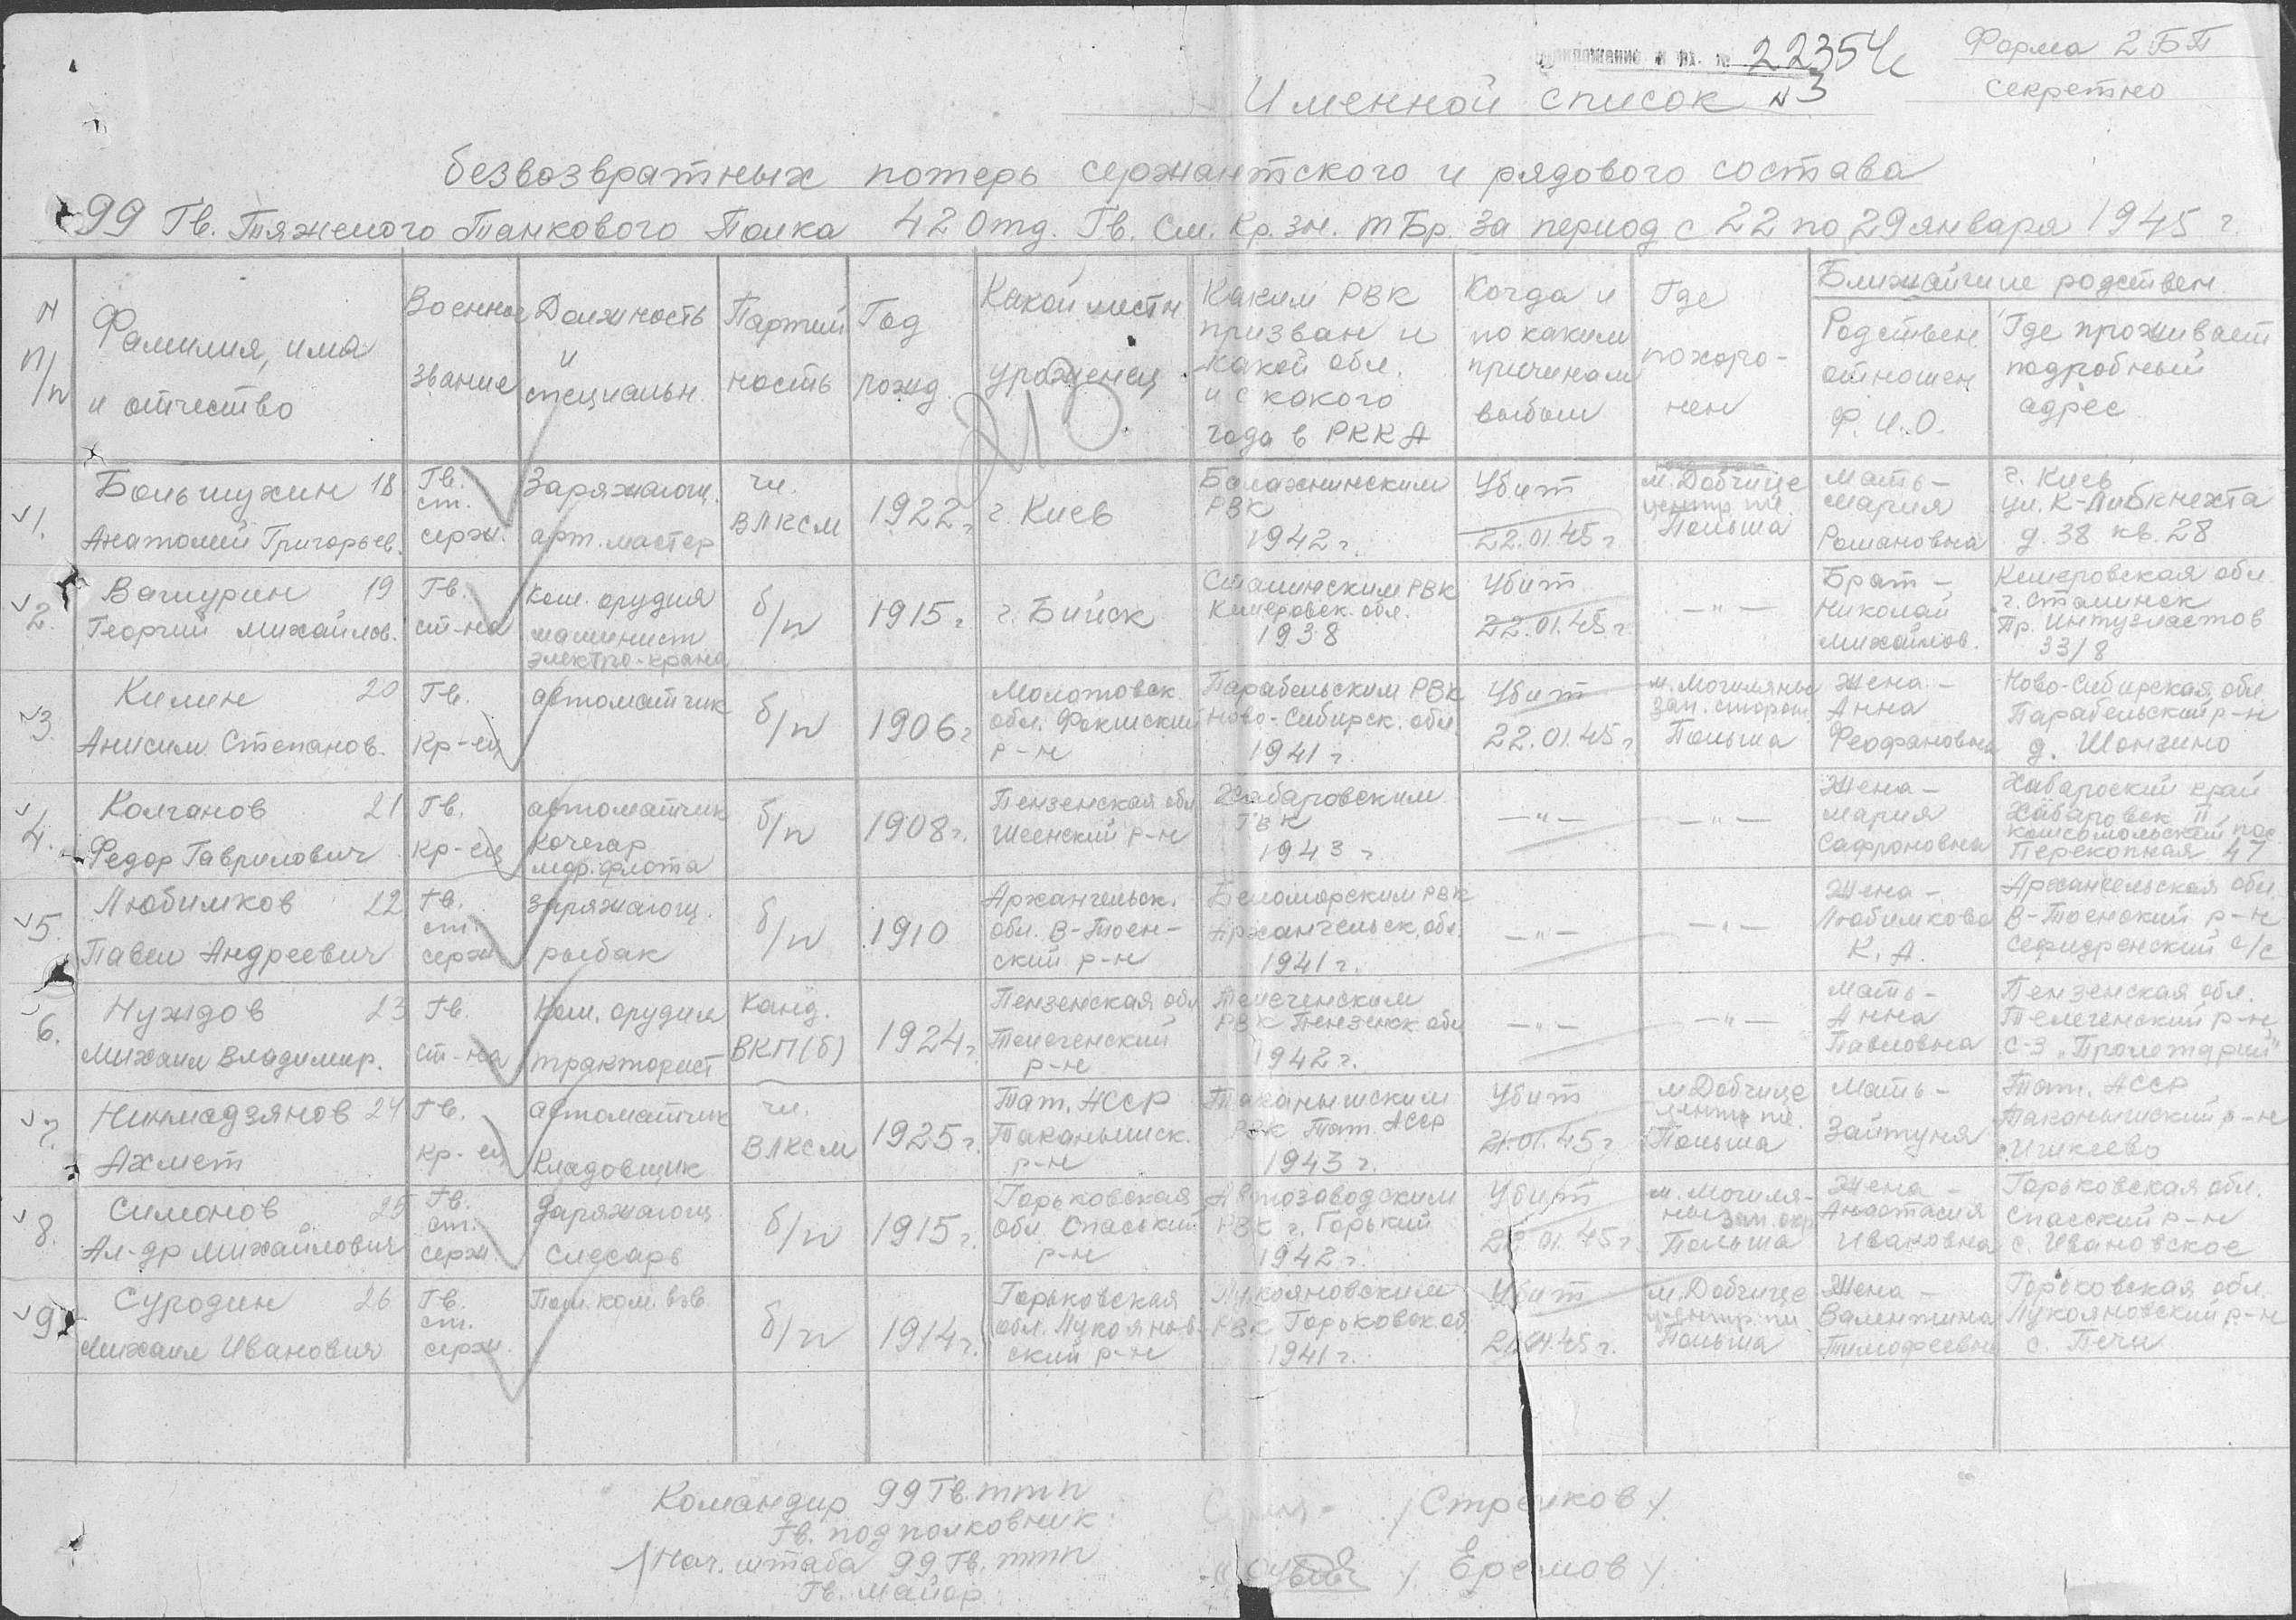 22354с
Форма 2БП
секретно
Именной список №3
безвозвратных потерь сержантского и рядового состава
99 Гв. Тяжелого Танкового Полка 42 Отд. Гв. См. Кр. Зн. ТБр. за период с 22 по 29 января 1945 г.
N п/п
Фамилия, имя и отчество
Военное звание
Должность и специальн.
Партий ность
Год рожд
Какой местн уроженец
Каким РВК призван и какой обл. и с какого года в РККА
Когда и по каким причинам выбыл
Где похоро- нен
Ближайшие родствен.
Родствен отношен Ф.И.О.
Где проживает подробный адрес
1. Большухин 18 Анатолий Григорьев. Гв. ст. серж. Заряжающ. арт. мастер чл. ВЛКСМ 1922 г. г. Киев РВК 1942 г. Убит 22.01.45 г. м. Добчице центр пл. Польша Мать – Мария Романовна г. Киев ул. К-Либкнехта д. 38 кв. 28
2. Вашурин 19 Георгий Михайлов. Гв. ст-на Ком. орудия машинист электро-крана б/п 1915 г. г. Бийск Сталинским РВК Кемеровск. обл. 1938 Убит 22.01.45 г. –"– Брат – Николай Михайлов. Кемеровская обл г. Сталинск Пр. Интузиастов 33/8
3. Килин 20 Анисим Степанов. Гв. кр-ец автоматчик б/п 1906 г Молотовск. обл. Фокинский р-н Парабельским РВК Ново-Сибирск. обл. 1941 г. Убит 22.01.45 г. м. Могиляны зап. сторон. Польша Жена – Анна Феофановна Ново-Сибирская обл Парабельский р-н д.
4. Колганов 21 Федор Гаврилович Гв. кр-ец автоматчик кочегар мор. флота б/п 1908 г. Пензенская обл р-н Хабаровским ГВК 1943 г –"– –"– Жена – Мария Сафроновна край Хабаровск II Комсомольский пос Перекопная 47
5. Любимков 22 Павел Андреевич Гв. ст. серж заряжающ. рыбак б/п 1910 Архангельск. обл. В-Тоен- ский р-н Беломорским РВК Архангельск. обл. 1941 г. –"– –"– Жена – Любимкова К. А. Архангельская обл. В-Тоенский р-н с/с
6. Нуждов 23 Михаил Владимир. Гв. ст-на Ком. орудия тракторист Канд. ВКП(б) 1924 г. Пензенская обл Телегенский р-н Телегенским РВК Пензенск обл 1942 г. –"– –"– Мать – Анна Павловна Пензенская обл. Телегенский р-н с-з
7. 24 Ахмет Гв. кр-ец автоматчик Кладовщик чл. ВЛКСМ 1925 г. Тат. АССР Таканышск. р-н Таканышским РВК Тат. АССР 1943 г. Убит 21.01.45 г м Добчице центр пл. Польша Мать – Зайтуня Тат. АССР Таканышский р-н
8. Симонов 25 Ал-др Михайлович Гв. ст. серж Заряжающ слесарь б/п 1915 г. Горьковская обл. Спасский р-н Автозаводским РВК г. Горький 1942 г. Убит 22.01.45 г. Польша Жена – Анастасия Ивановна Горьковская обл. Спасский р-н с. Ивановское
9. Суродин 26 Михаил Иванович Гв. ст. серж. Пом. ком. взв б/п 1914 г. Горьковская обл. Лукоянов- ский р-н Лукояновским РВК Горьковск об 1941 г. Убит 21.01.45 г. м. Добчице центр пл. Польша Жена – Валентина Тимофеевна Горьковская обл. Лукояновский р-н с. Печи
Командир 99 Гв. ттп
Гв. подполковник /Стрелков/
Нач. штаба 99 Гв. ттп
Гв. майор /Еремов/